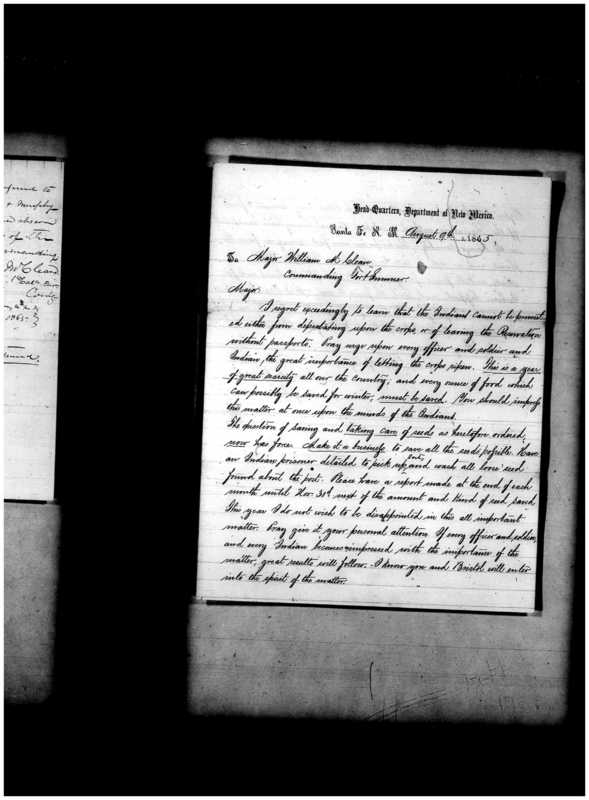 to
& Murphy
of The
Commanding
McCleave
1st Cav.
1865
Head-Quarters, Department of New Mexico.
Santa Fe N. M. August 9th 1865.
To Major William McCleave
Commanding Fort Sumner.
Major.
I regret exceedingly to learn that the Indians cannot be prevent
ed either from depredating upon the crops or of leaving the Reservation
without passports. Pray urge upon every officer and soldier and
Indian, the great importance of letting the crops ripen. This is a year
of great scarcity all over the country, and every ounce of food which
can possibly be saved for winter, must be saved. You should impress
this matter at once upon the minds of the Indians.
The question of saving and taking care of seeds as heretofore ordered,
now has force. Make it a business to save all the seeds possible. Have
an Indian prisoner detailed to pick up, and wash all loose seed
found about the post. Please have a report made at the end of each
month until Nov 30th next of the amount and kind of seed saved
This year I do not wish to be disappointed in this all important
matter. Pray give it your personal attention. If every officer and soldier,
and every Indian becomes impressed with the importance of the
matter, great results will follow. I know you and Bristol will enter
into the spirit of the matter.